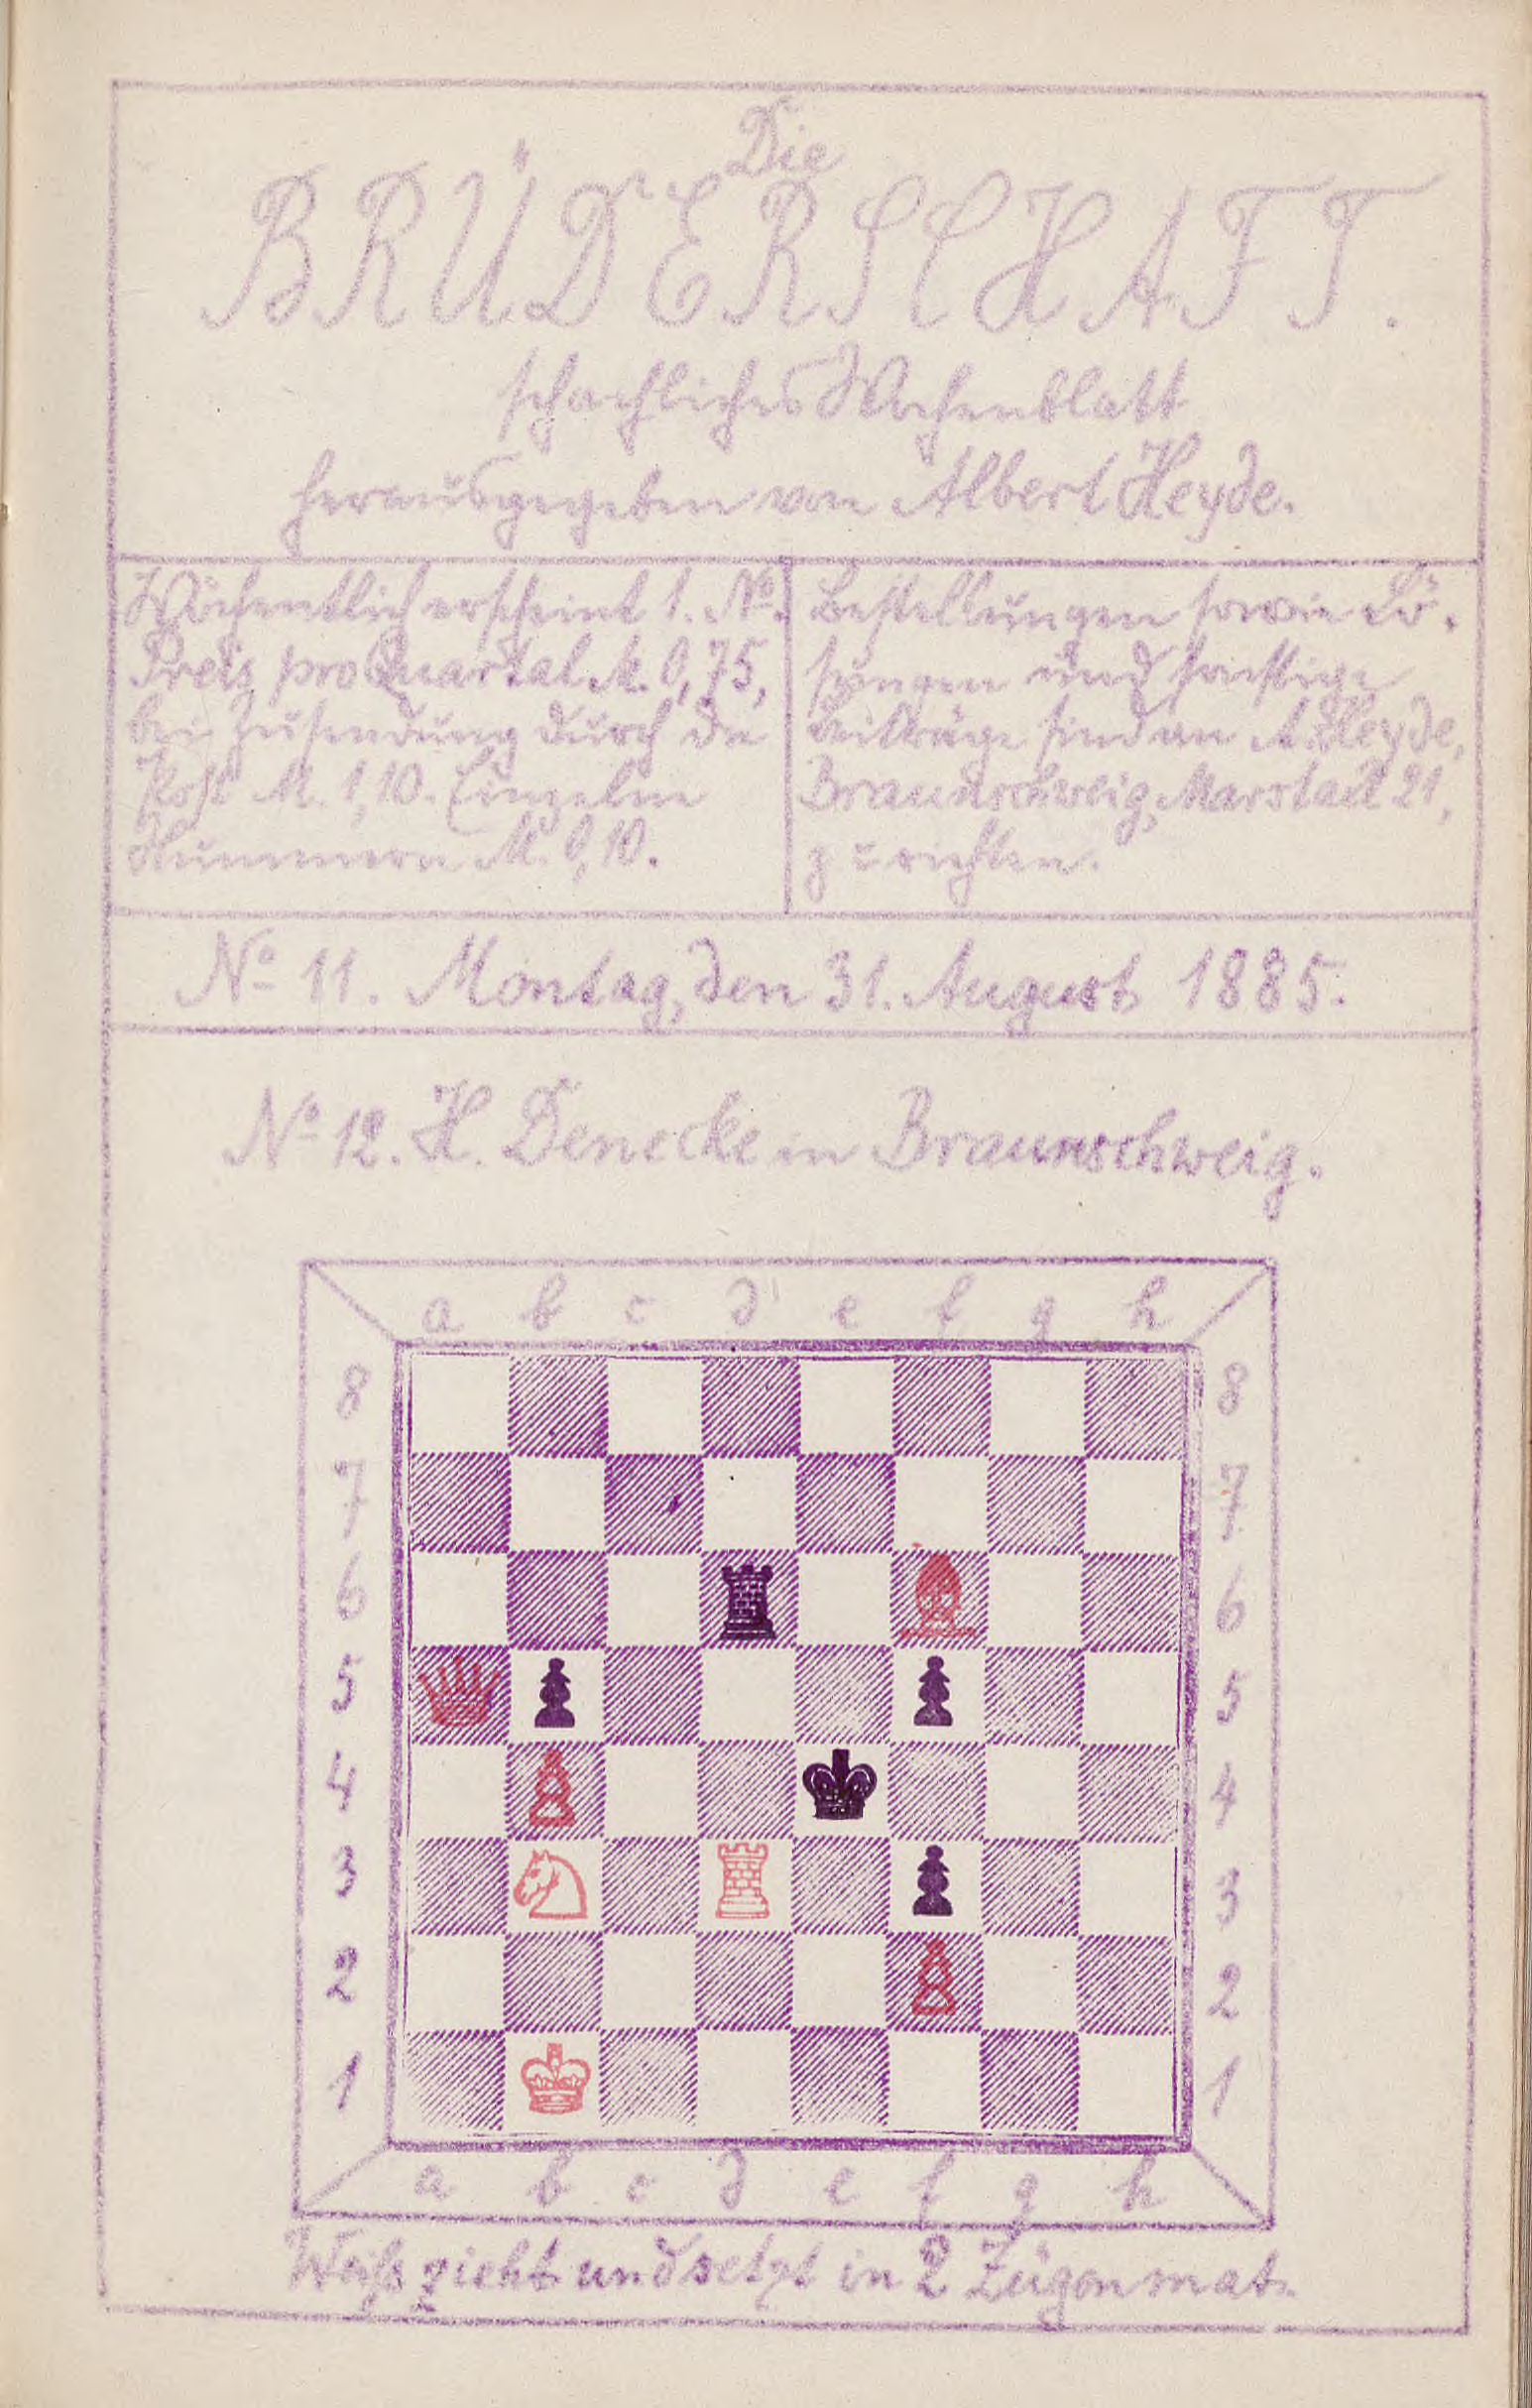 Die
BRÜDERSCHAFT.
schachliches Wochenblatt
herausgegeben von Albert Heyde.
Wöchentlich erscheint 1. No.
Preis pro Quartal M. 0,75,
bei Zusendung durch die
Post M. 1,10. Einzelne
Nummern M. 0,10.
Bestellungen sowie Lö-
sungen und sonstige
Beiträge sind an A. Heyde,
Braunschweig, Marstall 21,
zu richten.
No 11. Montag, den 31. August 1885.
No 12. H. Denecke in Braunschweig.
a b c d e f g h
8 8
7 7
6 6
5 5
4 4
3 3
2 2
1 1
a b c d e f g h
Weiß zieht und setzt in 2 Zügen mat.